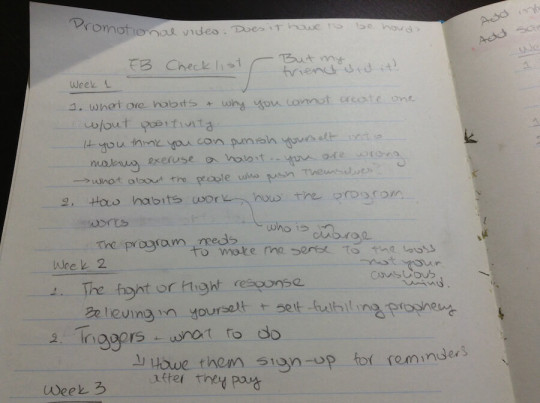 Promotional video. Does it have to be hard.
EB Checklist
But my friend did it!
Week 1
1. What are habits + why you cannot create one
w/out positivity
If you think you can punish yourself into
making exercise a habit... you are wrong
→ what about the people who push themselves?
2. How habits work how the program
works
who is in charge
The program needs
to make me sense to the boss
not your
conscious
mind.
Week 2
1. The fight or flight response
Believing in yourself + self-fulfilling prophecy
2. Triggers - what to do
↳ Have them sign-up for reminders
after they pay
Week 3
Add
Add